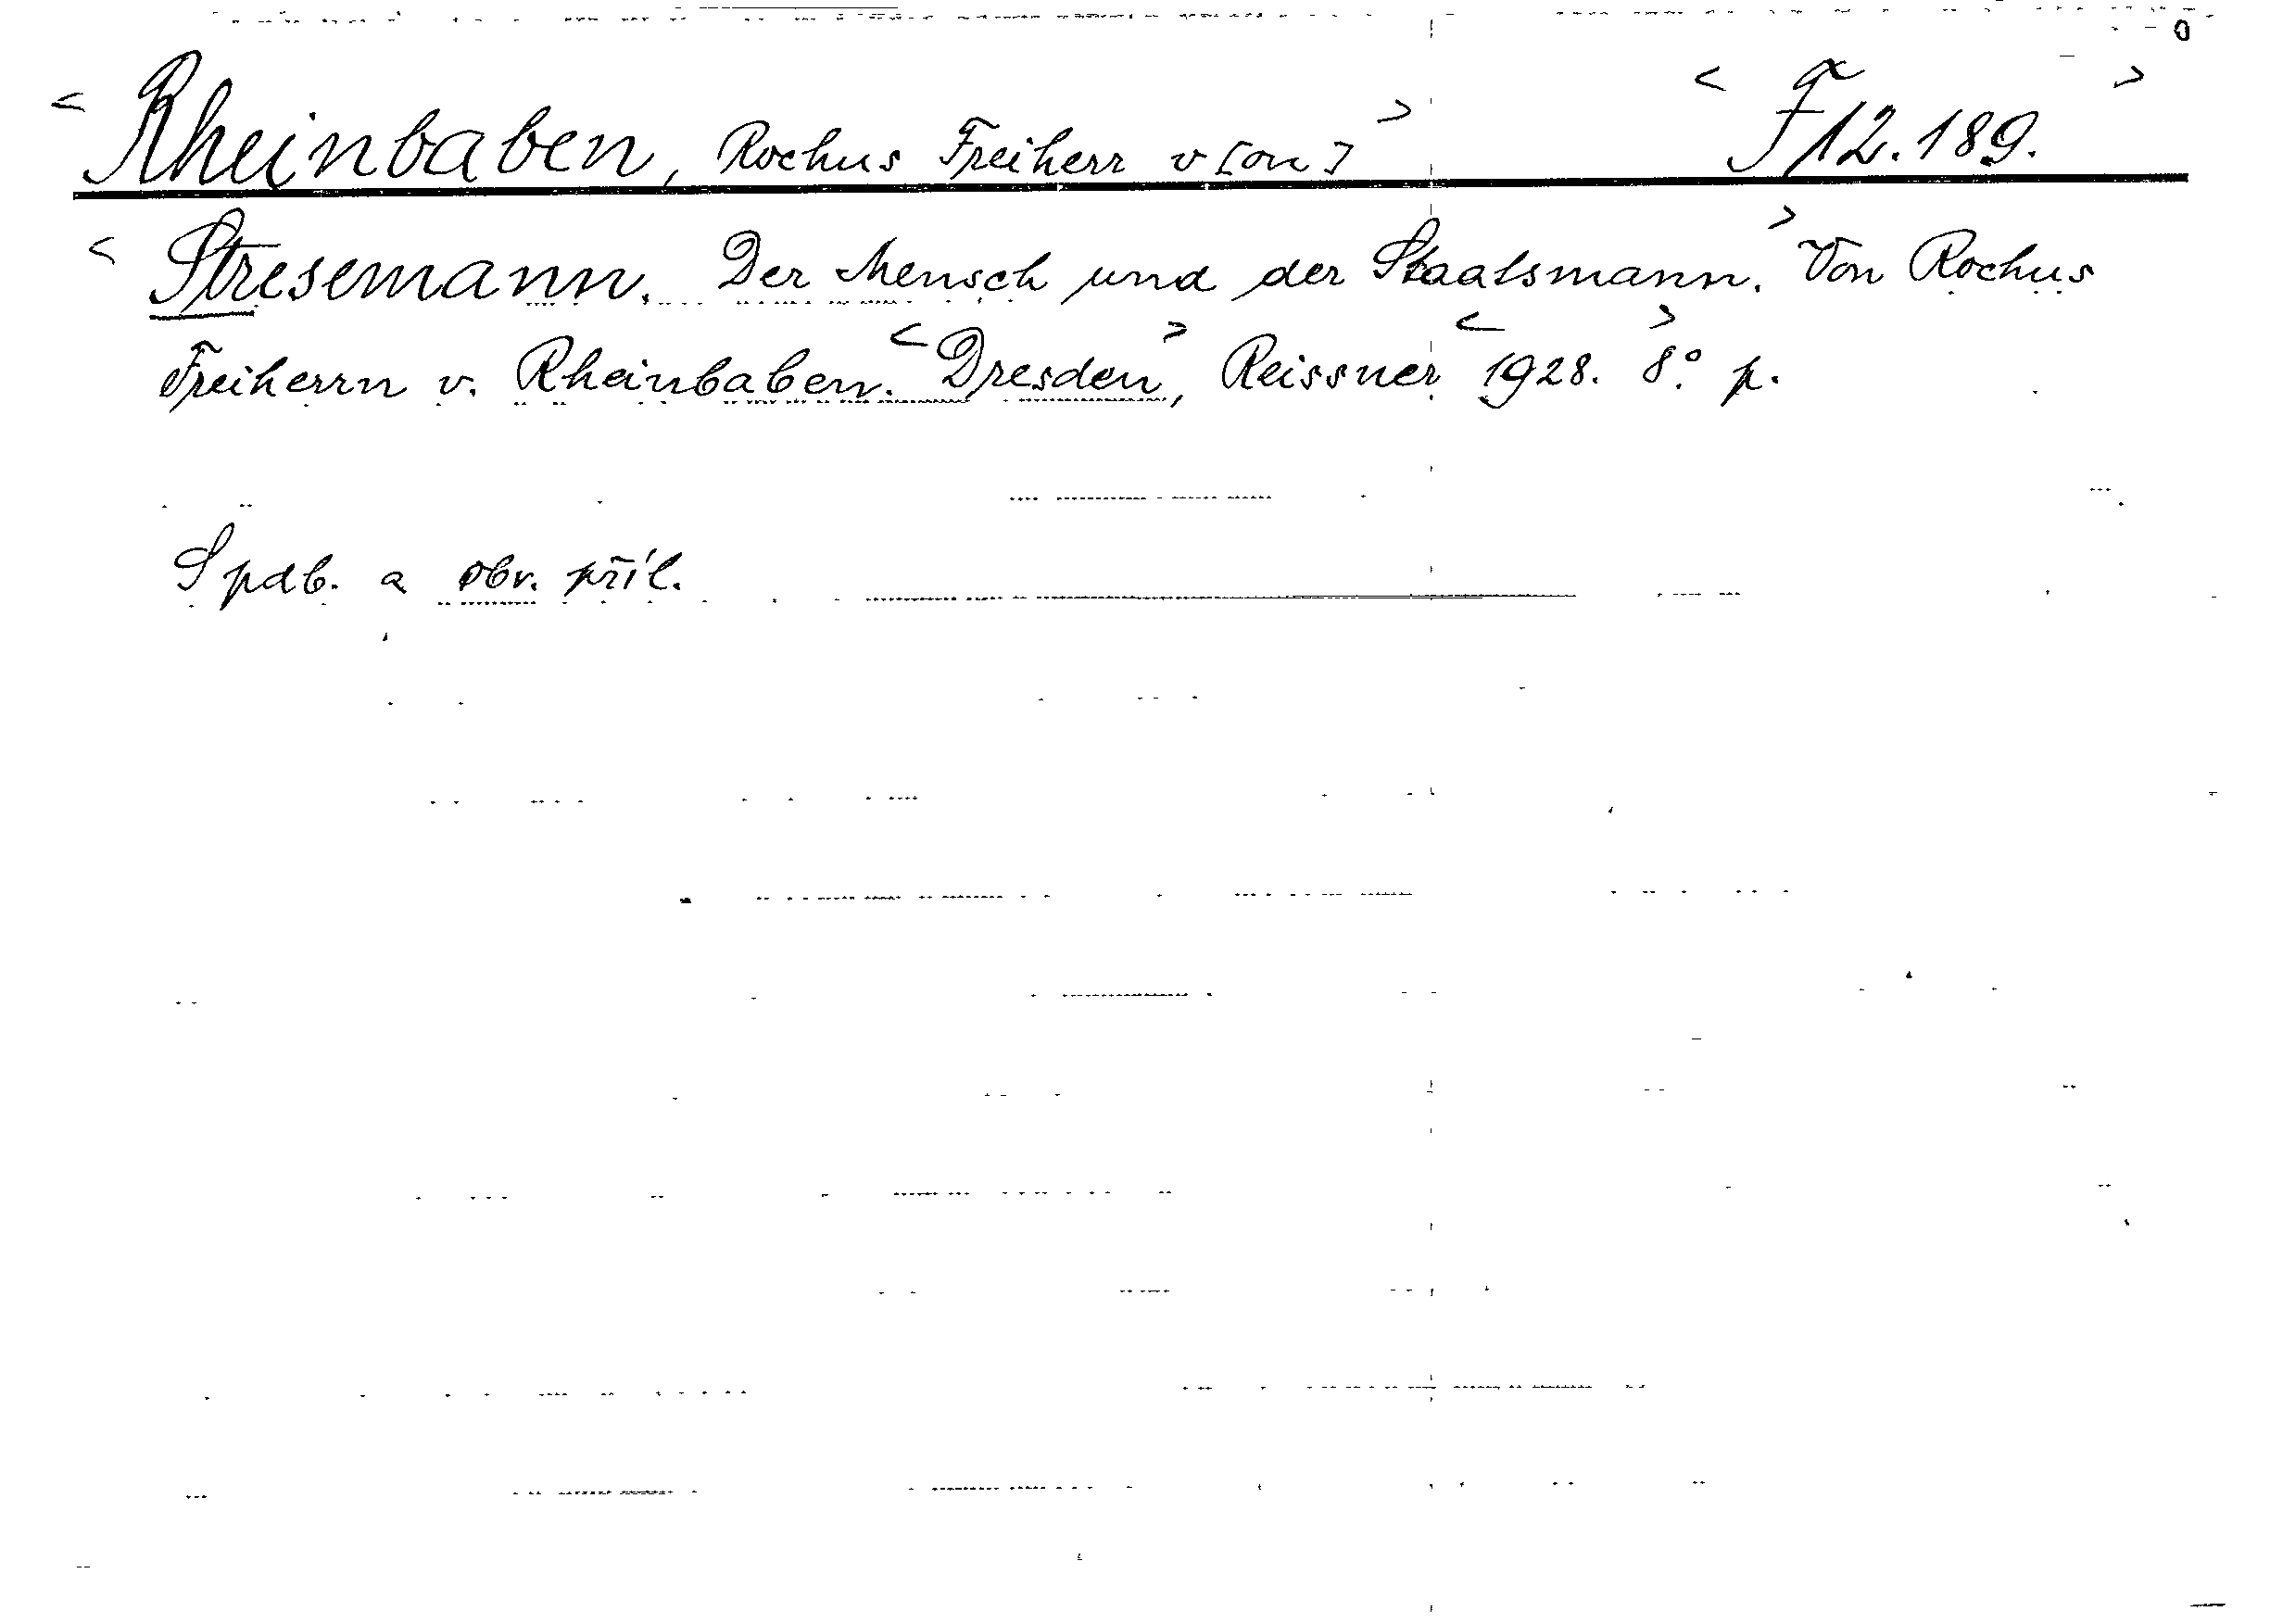 < Rheinbaben, Rochus Freiherr v[on] > < F 12.189. >
< Stresemann. Der Mensch und der Staatsmann. > Von Rochus
Freiherrn v. Rheinbaben. < Dresden >, Reissner < 1928. > 8° p.
S pdb. a obr. příl.